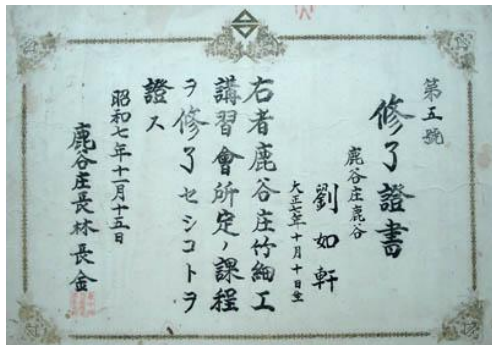 第五號
修了證書
鹿谷庄鹿谷
劉如軒
大正七年十月十日生
右者鹿谷庄竹細工
講習會所定ノ課程
ヲ修了セシコトヲ
證ス
昭和七年十一月十五日
鹿谷庄長林長金